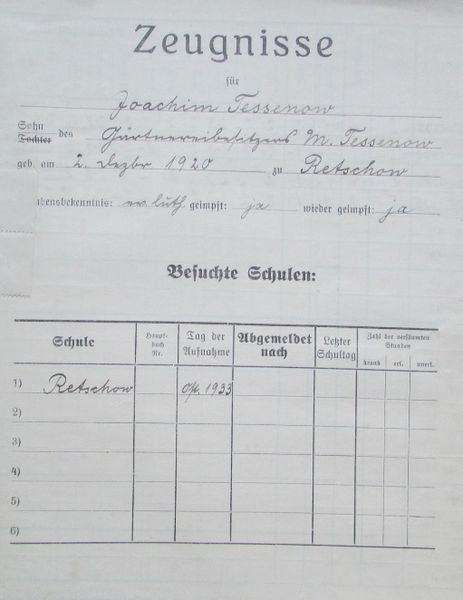 Zeugnisse
für
Joachim Tessenow
Sohn
Tochter des Gärtnereibesitzers M. Tessenow
geb. am 2. Dezbr 1920 zu Retschow
bensbekenntnis: ev. luth. geimpft: ja wieder geimpft: ja
Besuchte Schulen:
Schule Haupt-buch Nr. Tag der Aufnahme Abgemeldet nach Letzter Schultag Zahl der versäumten Stunden
krank erl. unerl.
1) Retschow 1933
2)
3)
4)
5)
6)